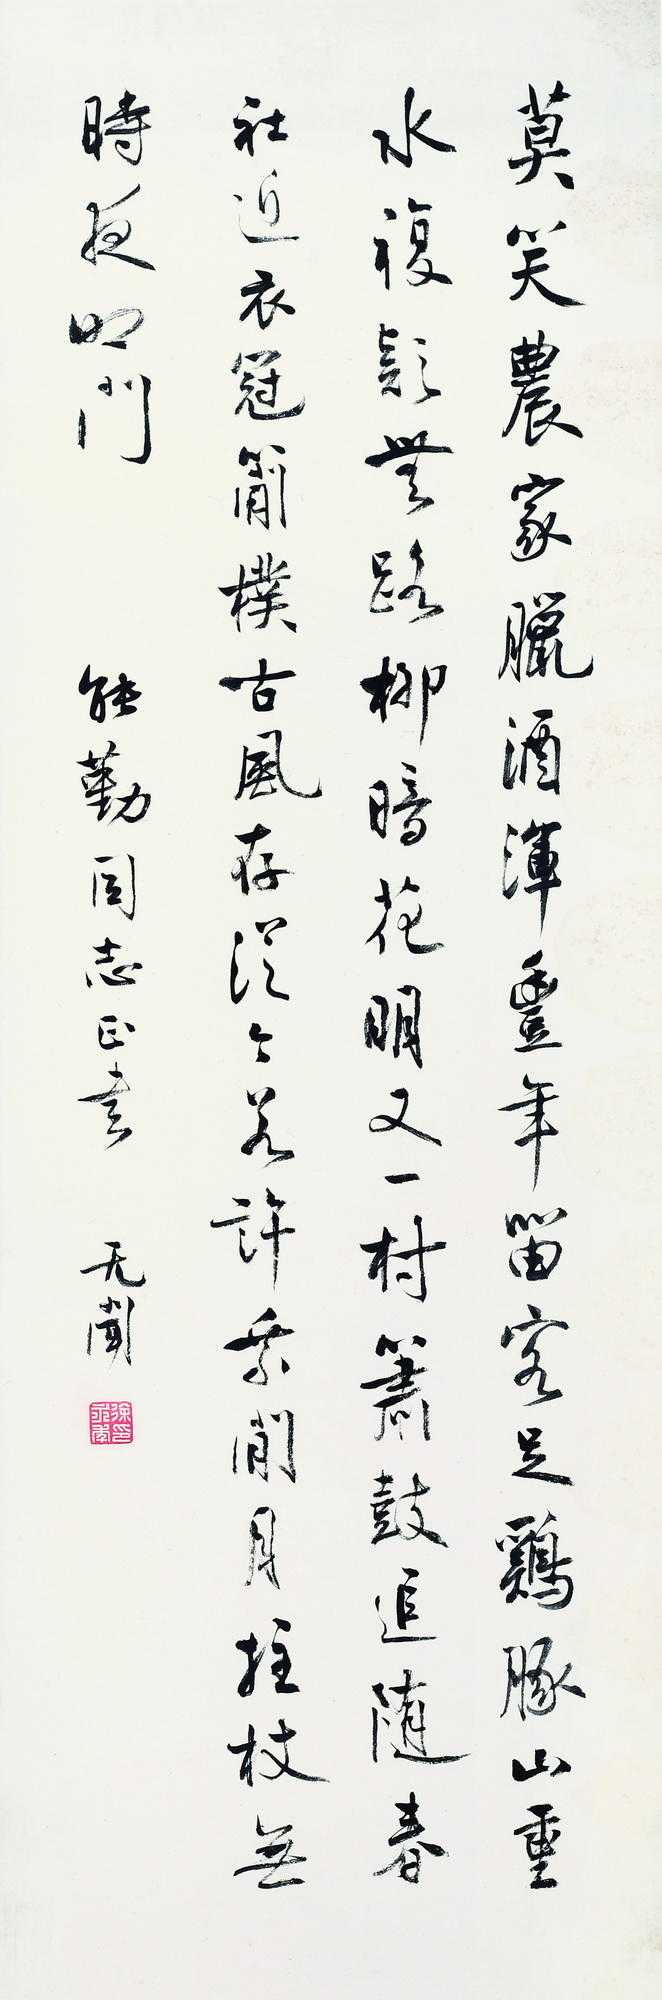 莫笑農家臘酒渾豐年留客足鷄豚山重
水複疑無路柳暗花明又一村簫鼓追隨春
社近衣冠簡樸古風存從今若許乘閒月拄杖無
時夜叩門
能勤同志正書
无聞